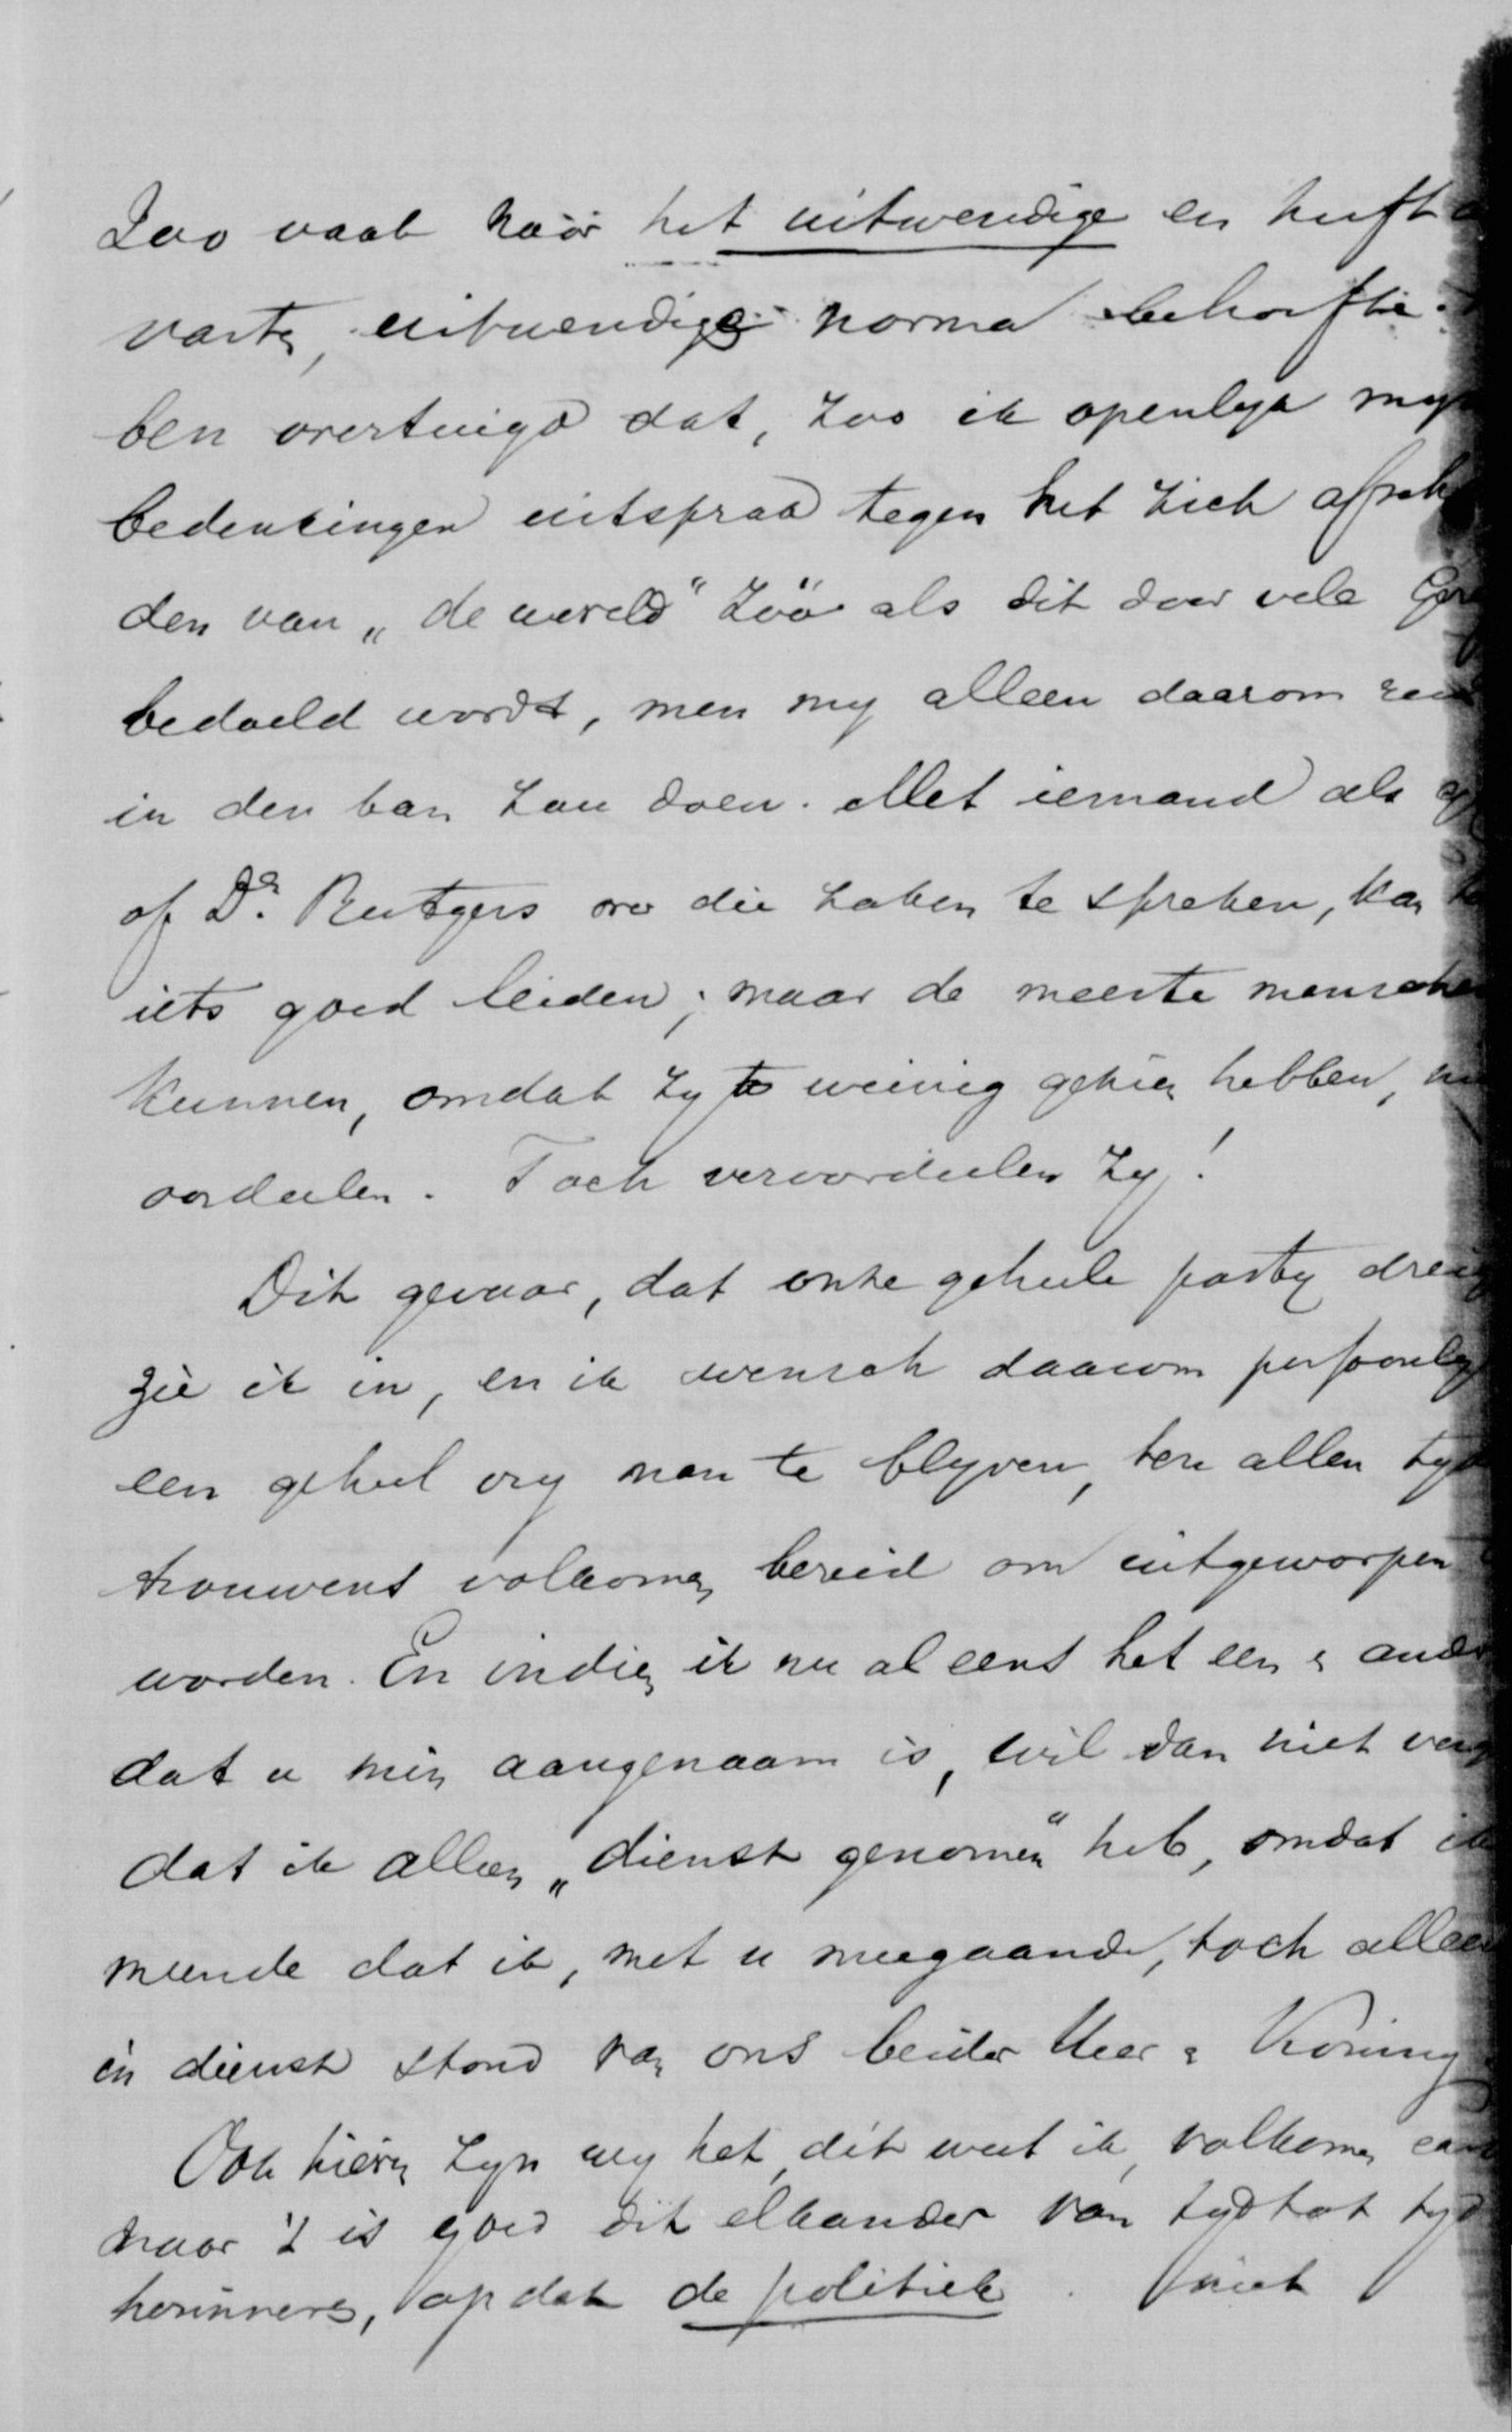 Zoo vaak naar het uitwendige en heeft a
vaste, uitwendige norma behoefte.
ben overtuigd dat, zoo ik openlyk myn
bedenkingen uitsprak tegen het zich afschei
den van „de wereld" zóó als dit door vele Ger
bedoeld wordt, men my alleen daarom reed
in den ban zou doen. Met iemand als
of Dr. Rutgers over die zaken te spreken, kan
iets goed leiden; maar de meeste mensche
kunnen, omdat zy te weinig gezien hebben, ni
oordeelen. Toch veroordeelen zy!
Dit gevaar, dat onze geheele party dreig
zie ik in, en ik wensch daarom persoonly
een geheel vry man te blyven, ten allen tyd
trouwens volkomen bereid om uitgeworpen t
worden. En indien ik nu al eens het een & ander
dat u min aangenaam is, wil dan niet verg
dat ik alleen „dienst genomen" heb, omdat ik
meende dat ik, met u meegaande, toch alleen
in dienst stond van ons beider Heer & Koning
Ook hierin zyn wy het, dit weet ik, volkomen eens
maar 't is goed dit elkander van tyd tot tyd
herinneren, opdat de politiek niet